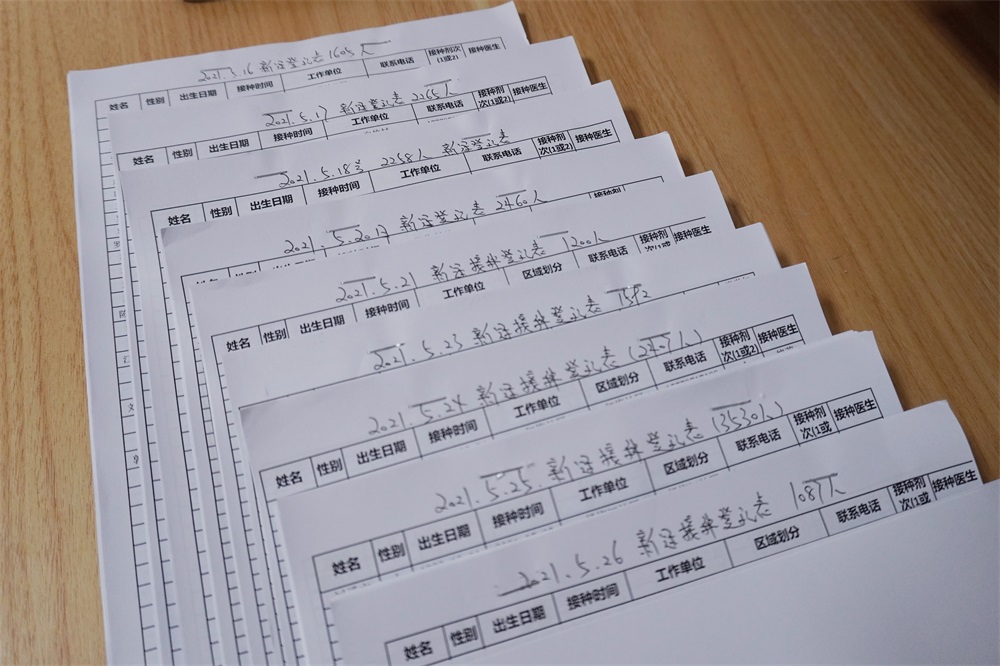 2021.5.16 新冠登记表 1605人
姓名 性别 出生日期 接种时间 工作单位 联系电话 接种剂次(1或2) 接种医生
2021.5.17 新冠登记表 2265人
姓名 性别 出生日期 接种时间 工作单位 联系电话 接种剂次(1或2) 接种医生
2021.5.18号 2258人 新冠登记表
姓名 性别 出生日期 接种时间 工作单位 联系电话 接种剂次(1或2) 接种医生
2021.5.20日 新冠登记表 2460人
姓名 性别 出生日期 接种剂
2021.5.21 新冠接种登记表 1200人
姓名 性别 出生日期 接种时间 工作单位 区域划分 联系电话 接种剂次(1或 接种医生
2021.5.23 新冠接种登记表
2021.5.24 新冠接种登记表
姓名 性别 出生日期 接种时间 工作单位 区域划分 联系电话 接种剂次(1或2) 接种医生
2021.5.25 新冠接种登记表 (3530人)
姓名 性别 出生日期 接种时间 工作单位 区域划分 联系电话 接种剂次(1或 接种医生
2021.5.26 新冠接种登记表 1087人
姓名 性别 出生日期 接种时间 工作单位 区域划分 联系电话 接种剂次(1或 接种医生